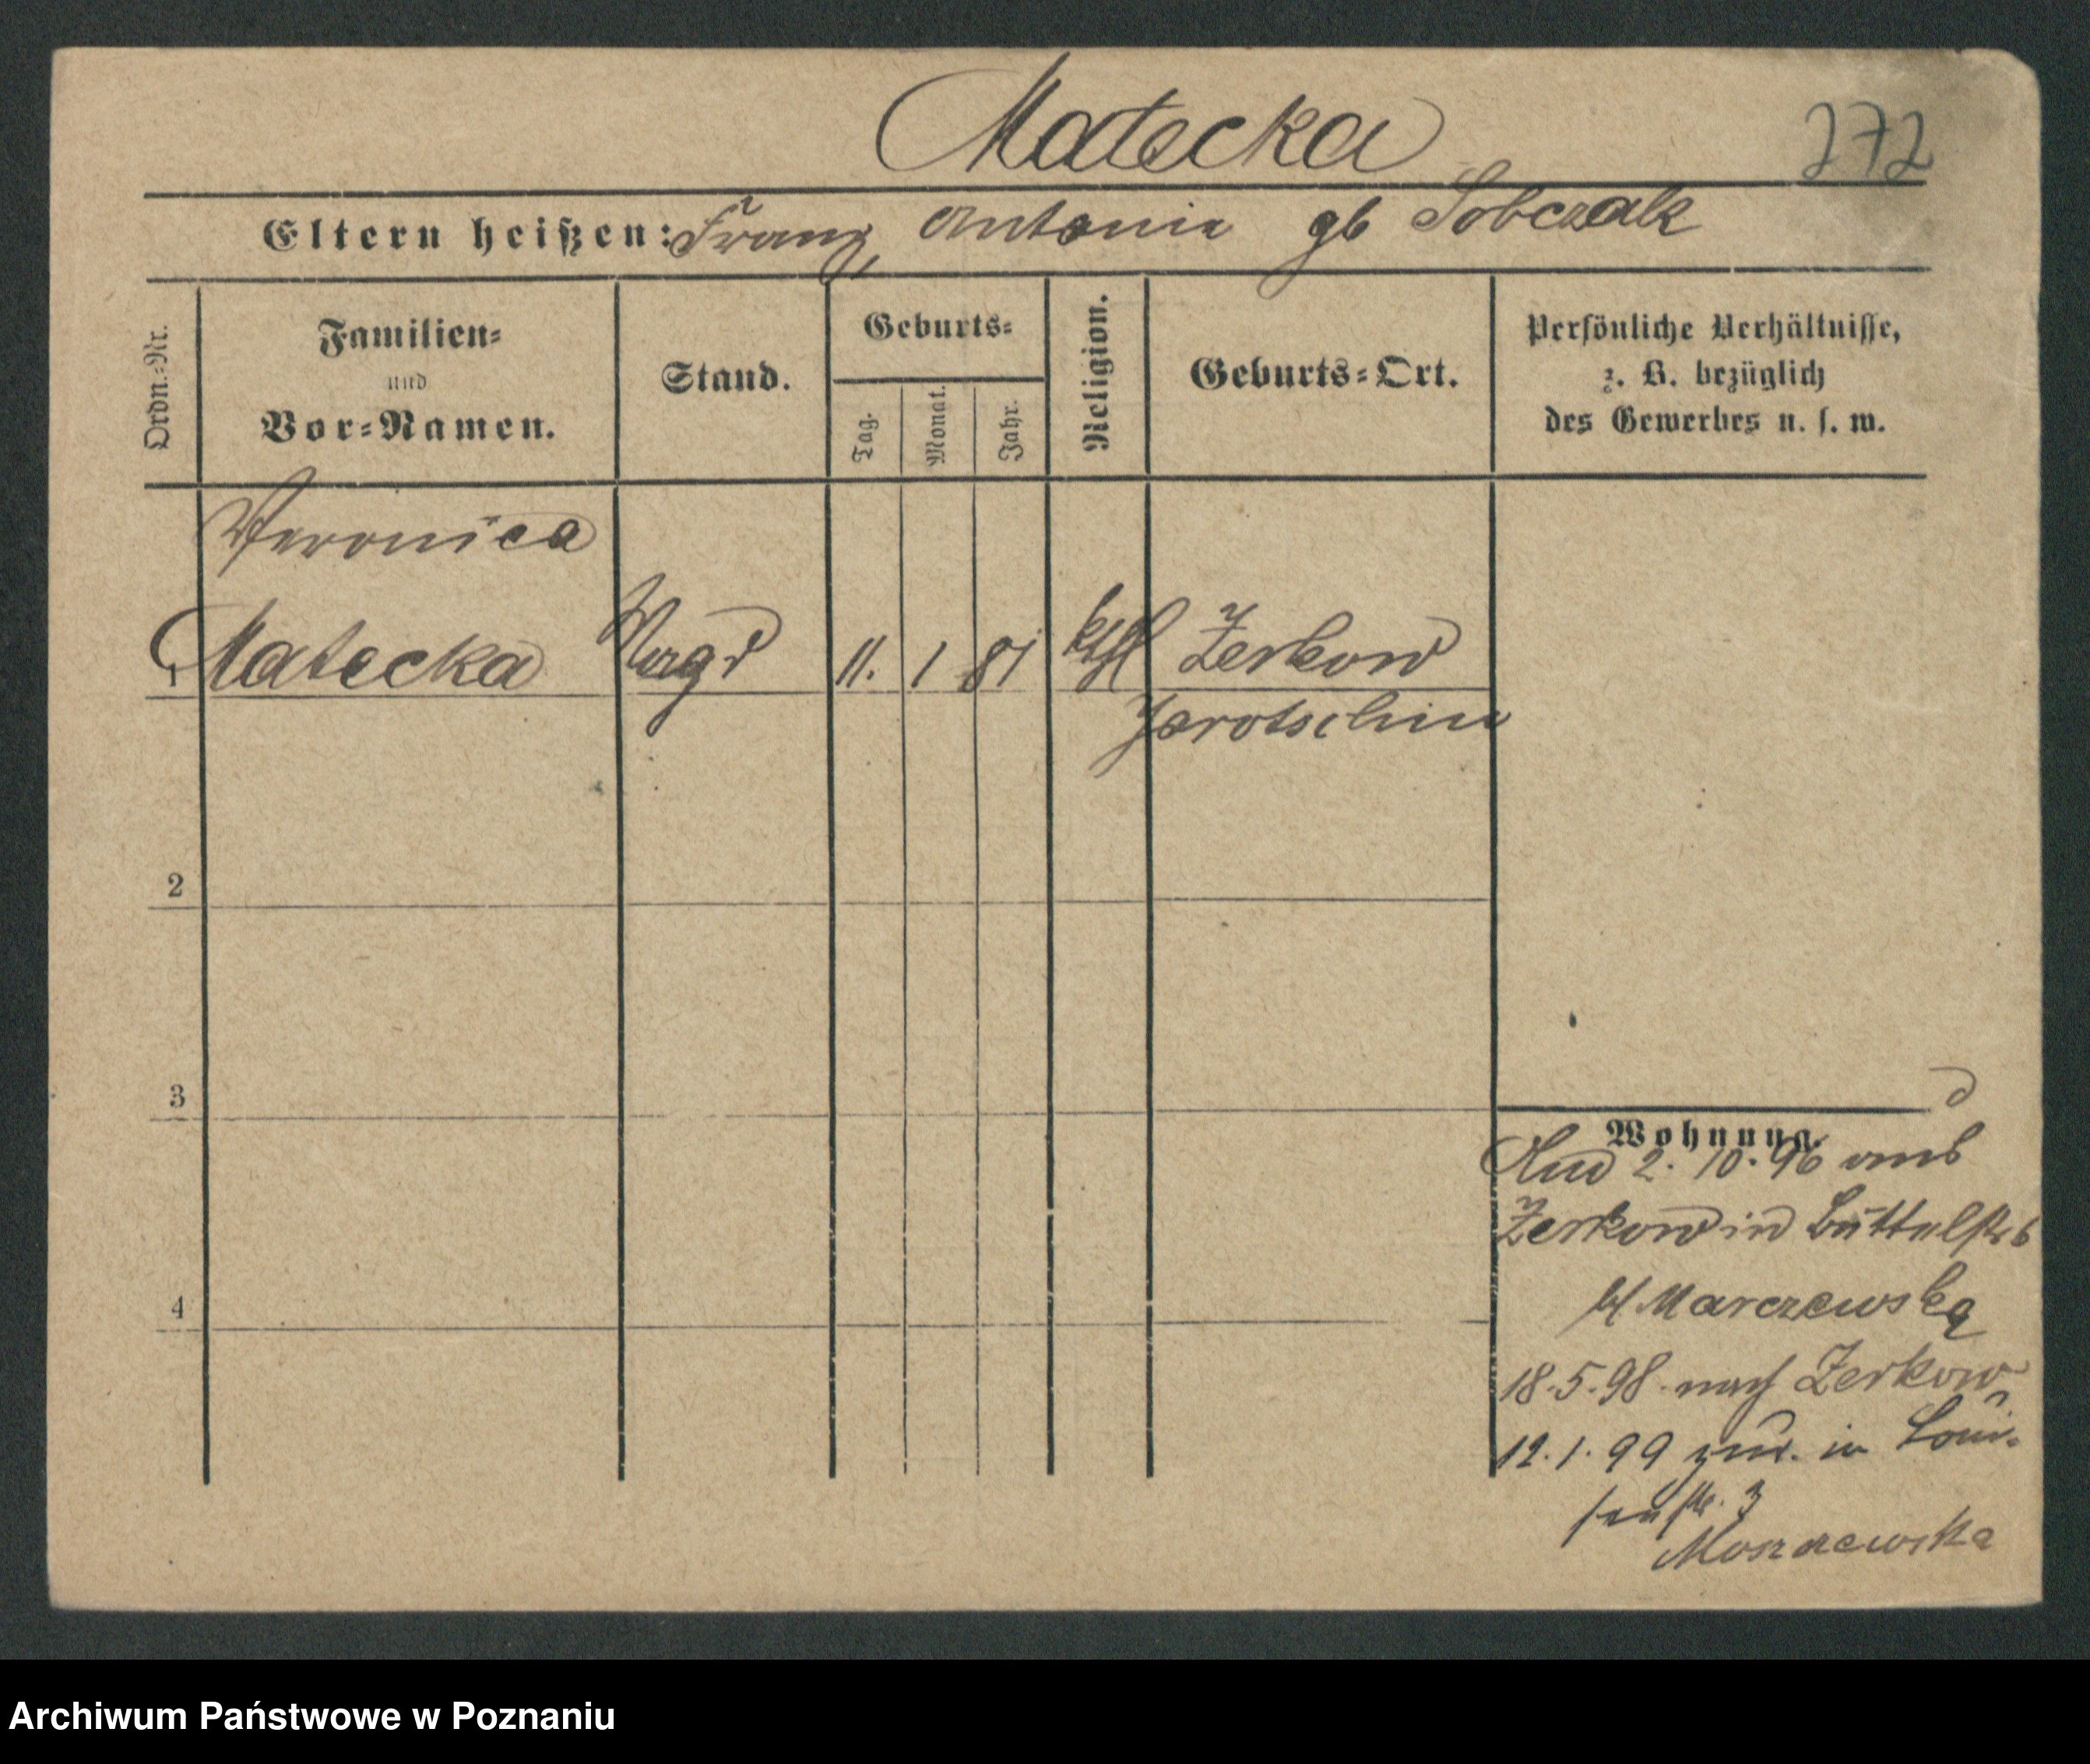 Matecka 272
Eltern heißen: Franz, Antonie gb Sobczak
Ordn.-Nr.
Familien-
und
Vor-Namen.
Stand.
Geburts-
Tag.
Monat.
Jahr.
Religion.
Geburts-Ort.
Persönliche Verhältnisse,
z. B. bezüglich
des Gewerbes u. s. w.
Veronica
1 Matecka Magd 11. 1 81 kthl Zerkow
Jarotschin
2
3
4
Wohnung.
2. 10. 96 aus
Zerkow in Büttelstr 6
bei Marczewska
18.5.98. nach Zerkow
12.1.99 zur. in Loui-
senstr. 3
Archiwum Państwowe w Poznaniu